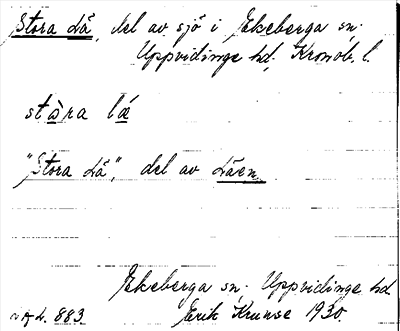 Stora Lå, del av sjö i Ekeberga sn.
Uppvidinge hd, Kronob. l.
stàra lá
"Stora Lå", del av Låen.
Ekeberga sn. Uppvidinge hd
883 Erik Kruuse 1930.